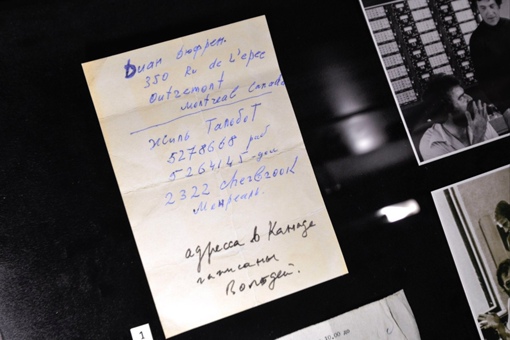 Диан Дюфрен.
350 Ru de L'epee
Outremont
Montreal Canada
Жиль Талбот
5278668 раб
5264145-дом
2322 Cherbrook
Монреаль.
адресса в Канаде
написаны
Володей.
1